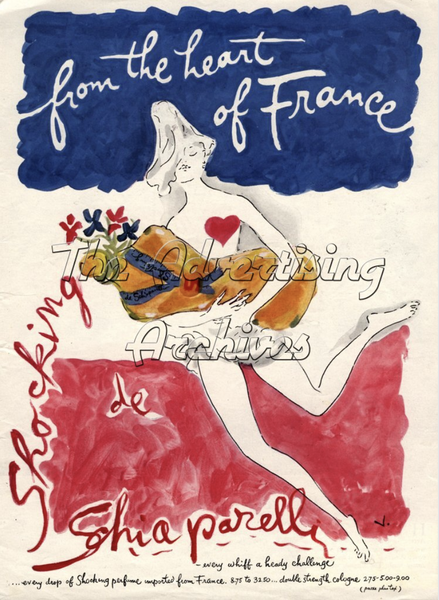 from the heart
of France
The Advertising
Archives
Shocking
de
Schiaparelli
V.
– every whiff a heady challenge
....every drop of Shocking perfume imported from France. 8.75 to 32.50... double strength cologne 2.75-5.00-9.00
(prices plus tax)